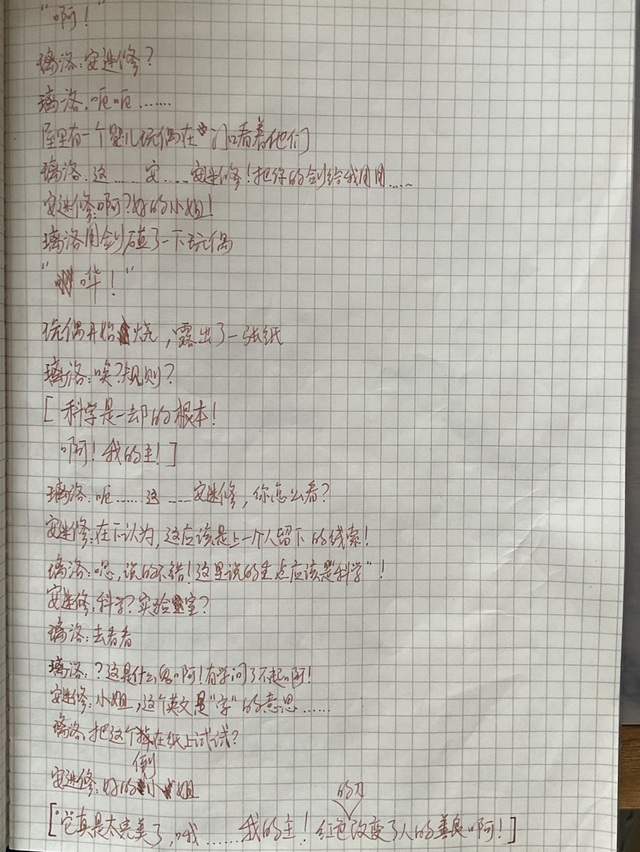 "啊！"
璃洛：安进修？
璃洛：呃呃……
屋里有一个婴儿玩偶在门口看着他们
璃洛：这……安……安进修！把你的剑给我用用……
安进修：啊？好的小姐！
璃洛用剑碰了一下玩偶
"哗！"
玩偶开始烧，露出了一张纸
璃洛：唉？规则？
[科学是一切的根本！
啊！我的主！]
璃洛：呃……这……安进修，你怎么看？
安进修：在下认为，这应该是上一个人留下的线索！
璃洛：嗯，说的不错！这里说的重点应该是"科学"！
安进修：科学？实验室？
璃洛：去看看
璃洛：？这是什么鬼啊！有学问了不起啊！
安进修：小姐，这个英文是"字"的意思……
璃洛：把这个倒在纸上试试？
安进修：好的小姐
["它真是太完美了，哦……我的主！红色的刀改变了人的善良啊！]